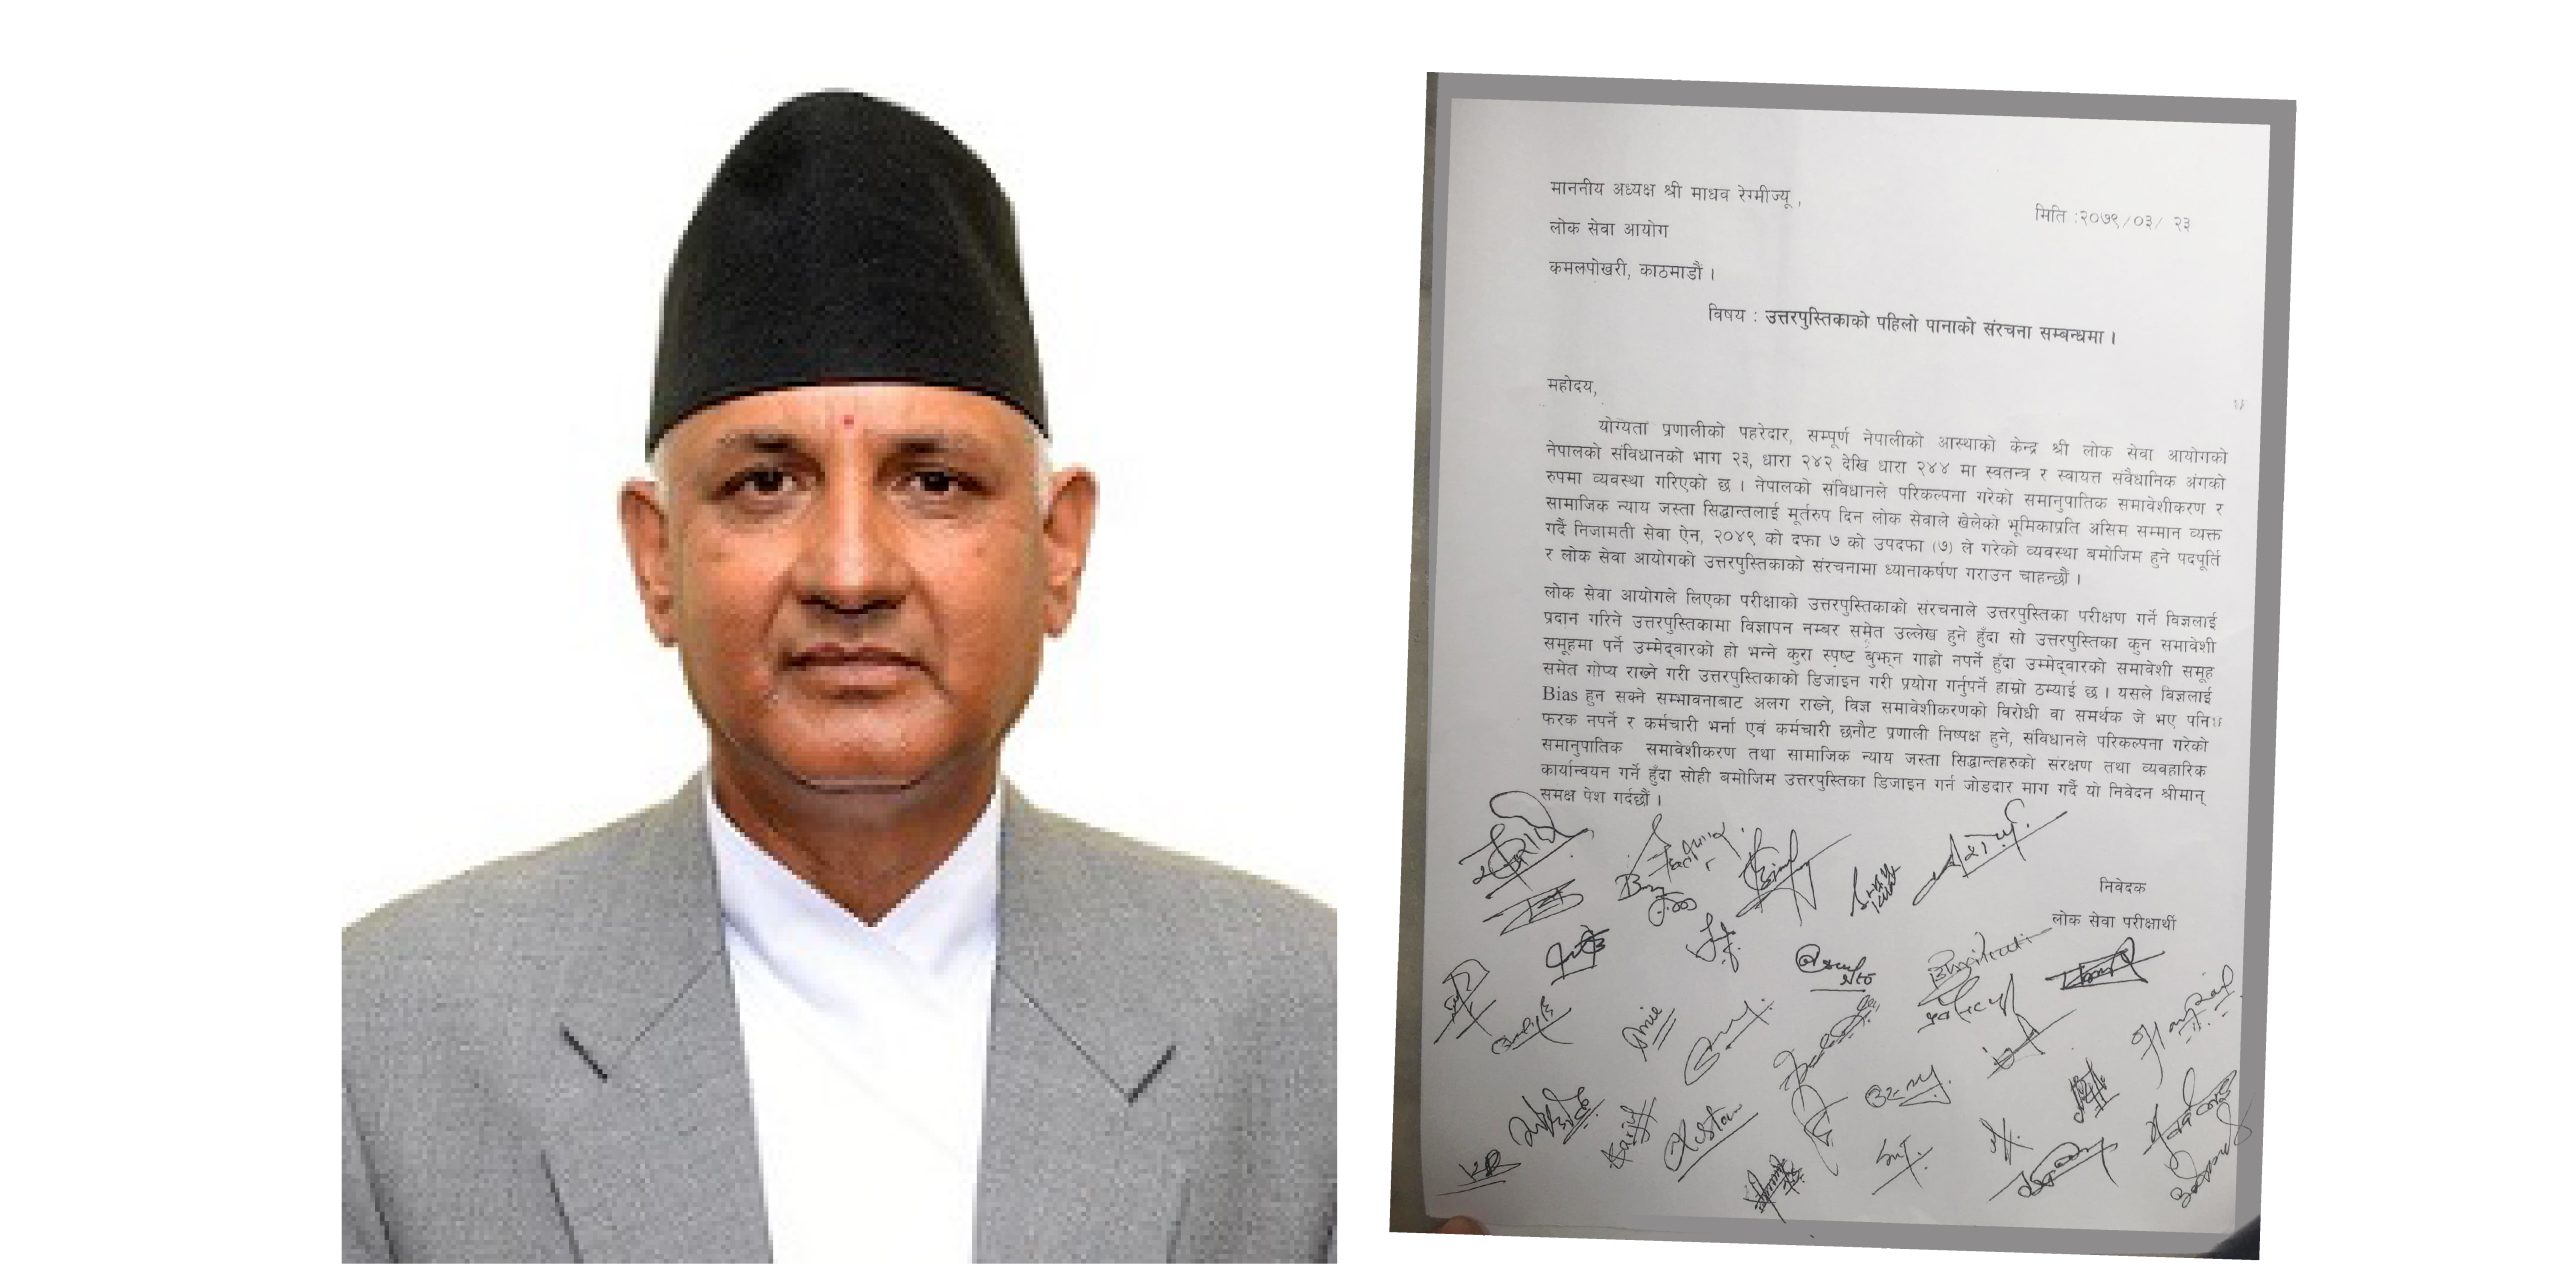 माननीय अध्यक्ष श्री माधव रेग्मीज्यू ,
मिति :२०७९/०३/ २३
लोक सेवा आयोग
कमलपोखरी, काठमाडौं ।
विषय : उत्तरपुस्तिकाको पहिलो पानाको संरचना सम्बन्धमा ।
महोदय,
योग्यता प्रणालीको पहरेदार, सम्पूर्ण नेपालीको आस्थाको केन्द्र श्री लोक सेवा आयोगको
नेपालको संविधानको भाग २३, धारा २४२ देखि धारा २४४ मा स्वतन्त्र र स्वायत्त संवैधानिक अंगको
रुपमा व्यवस्था गरिएको छ । नेपालको संविधानले परिकल्पना गरेको समानुपातिक समावेशीकरण र
सामाजिक न्याय जस्ता सिद्धान्तलाई मूर्तरुप दिन लोक सेवाले खेलेको भूमिकाप्रति असिम सम्मान व्यक्त
गर्दै निजामती सेवा ऐन, २०४९ को दफा ७ को उपदफा (७) ले गरेको व्यवस्था बमोजिम हुने पदपूर्ति
र लोक सेवा आयोगको उत्तरपुस्तिकाको संरचनामा ध्यानाकर्षण गराउन चाहन्छौं ।
लोक सेवा आयोगले लिएका परीक्षाको उत्तरपुस्तिकाको संरचनाले उत्तरपुस्तिका परीक्षण गर्ने विज्ञलाई
प्रदान गरिने उत्तरपुस्तिकामा विज्ञापन नम्बर समेत उल्लेख हुने हुँदा सो उत्तरपुस्तिका कुन समावेशी
समूहमा पर्ने उम्मेद्वारको हो भन्ने कुरा स्पष्ट बुझ्न गाह्रो नपर्ने हुँदा उम्मेद्वारको समावेशी समूह
समेत गोप्य राख्ने गरी उत्तरपुस्तिकाको डिजाइन गरी प्रयोग गर्नुपर्ने हाम्रो ठम्याई छ । यसले विज्ञलाई
Bias हुन सक्ने सम्भावनाबाट अलग राख्ने, विज्ञ समावेशीकरणको विरोधी वा समर्थक जे भए पनि
फरक नपर्ने र कर्मचारी भर्ना एवं कर्मचारी छनौट प्रणाली निष्पक्ष हुने, संविधानले परिकल्पना गरेको
समानुपातिक समावेशीकरण तथा सामाजिक न्याय जस्ता सिद्धान्तहरुको संरक्षण तथा व्यवहारिक
कार्यान्वयन गर्ने हुँदा सोही बमोजिम उत्तरपुस्तिका डिजाइन गर्न जोडदार माग गर्दै यो निवेदन श्रीमान्
समक्ष पेश गर्दछौं ।
निवेदक
लोक सेवा परीक्षार्थी